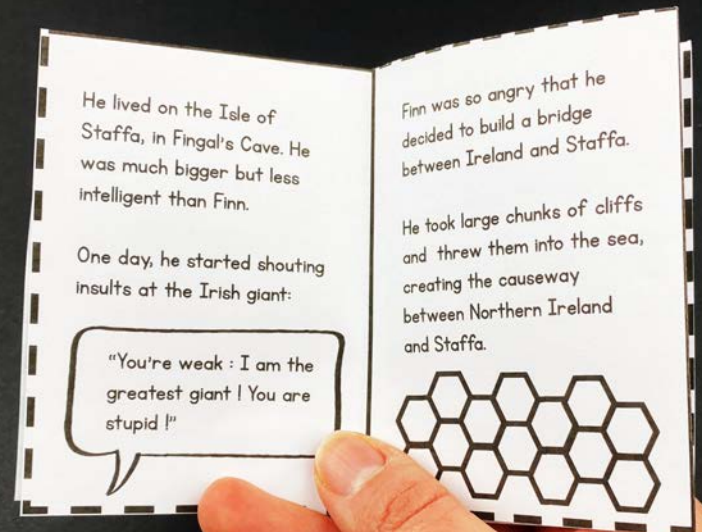 He lived on the Isle of
Staffa, in Fingal's Cave. He
was much bigger but less
intelligent than Finn.
One day, he started shouting
insults at the Irish giant:
“You're weak : I am the
greatest giant ! You are
stupid !”
Finn was so angry that he
decided to build a bridge
between Ireland and Staffa.
He took large chunks of cliffs
and threw them into the sea,
creating the causeway
between Northern Ireland
and Staffa.